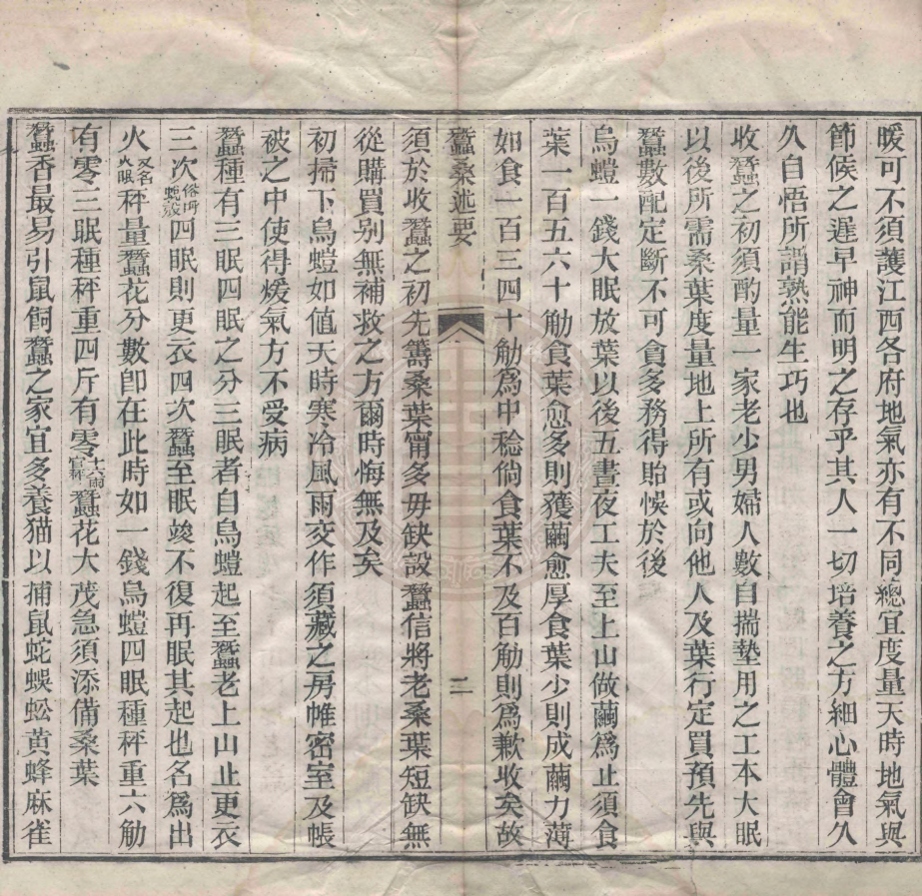 暖可不須護江西各府地氣亦有不同總宜度量天時地氣與
節候之遲早神而明之存乎其人一切培養之方細心體會久
久自悟所謂熟能生巧也
收蠶之初須酌量一家老少男婦人數自揣墊用之工本大眠
以後所需桑葉度量地上所有或向他人及葉行定買預先與
蠶數配定斷不可貪多務得貽悞於後
烏螘一錢大眠放葉以後五晝夜工夫至上山做繭爲止須食
葉一百五六十觔食葉愈多則獲繭愈厚食葉少則成繭力薄
如食一百三四十觔爲中稔倘食葉不及百觔則爲歉收矣故
蠶桑述要 二
須於收蠶之初先籌桑葉甯多毋缺設蠶信將老桑葉短缺無
從購買别無補救之方爾時悔無及矣
初掃下烏螘如値天時寒冷風雨交作須藏之房帷密室及帳
被之中使得煖氣方不受病
蠶種有三眠四眠之分三眠者自烏螘起至蠶老上山止更衣
三次俗呼蛻殼四眠則更衣四次蠶至眠竣不復再眠其起也名爲出
火又名火眠秤量蠶花分數卽在此時如一錢烏螘四眠種秤重六觔
有零三眠種秤重四斤有零十六兩官秤蠶花大茂急須添備桑葉
蠶香最易引鼠飼蠶之家宜多養猫以捕鼠蛇蜈蚣黄蜂麻雀